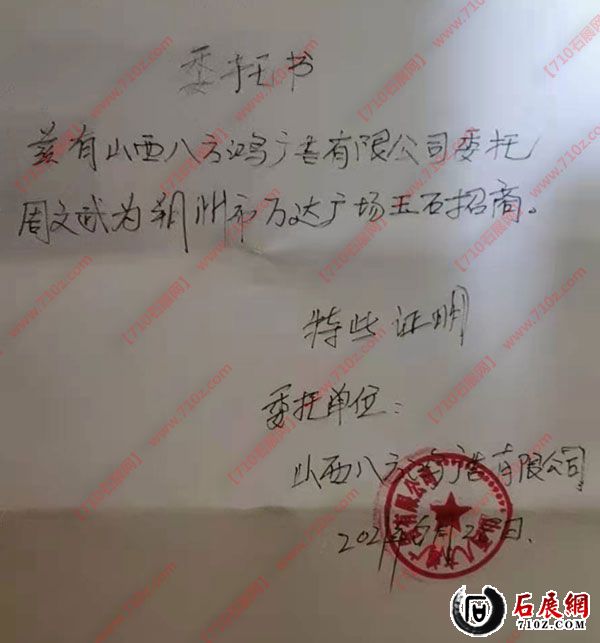 委托书
兹有山西八方鸿广告有限公司委托
周文武为朔州市万达广场玉石招商。
特些证明
委托单位：
山西八方鸿广告有限公司
202 年 月2 日.
石展網
7102.COM
【710石展网】www.710z.com